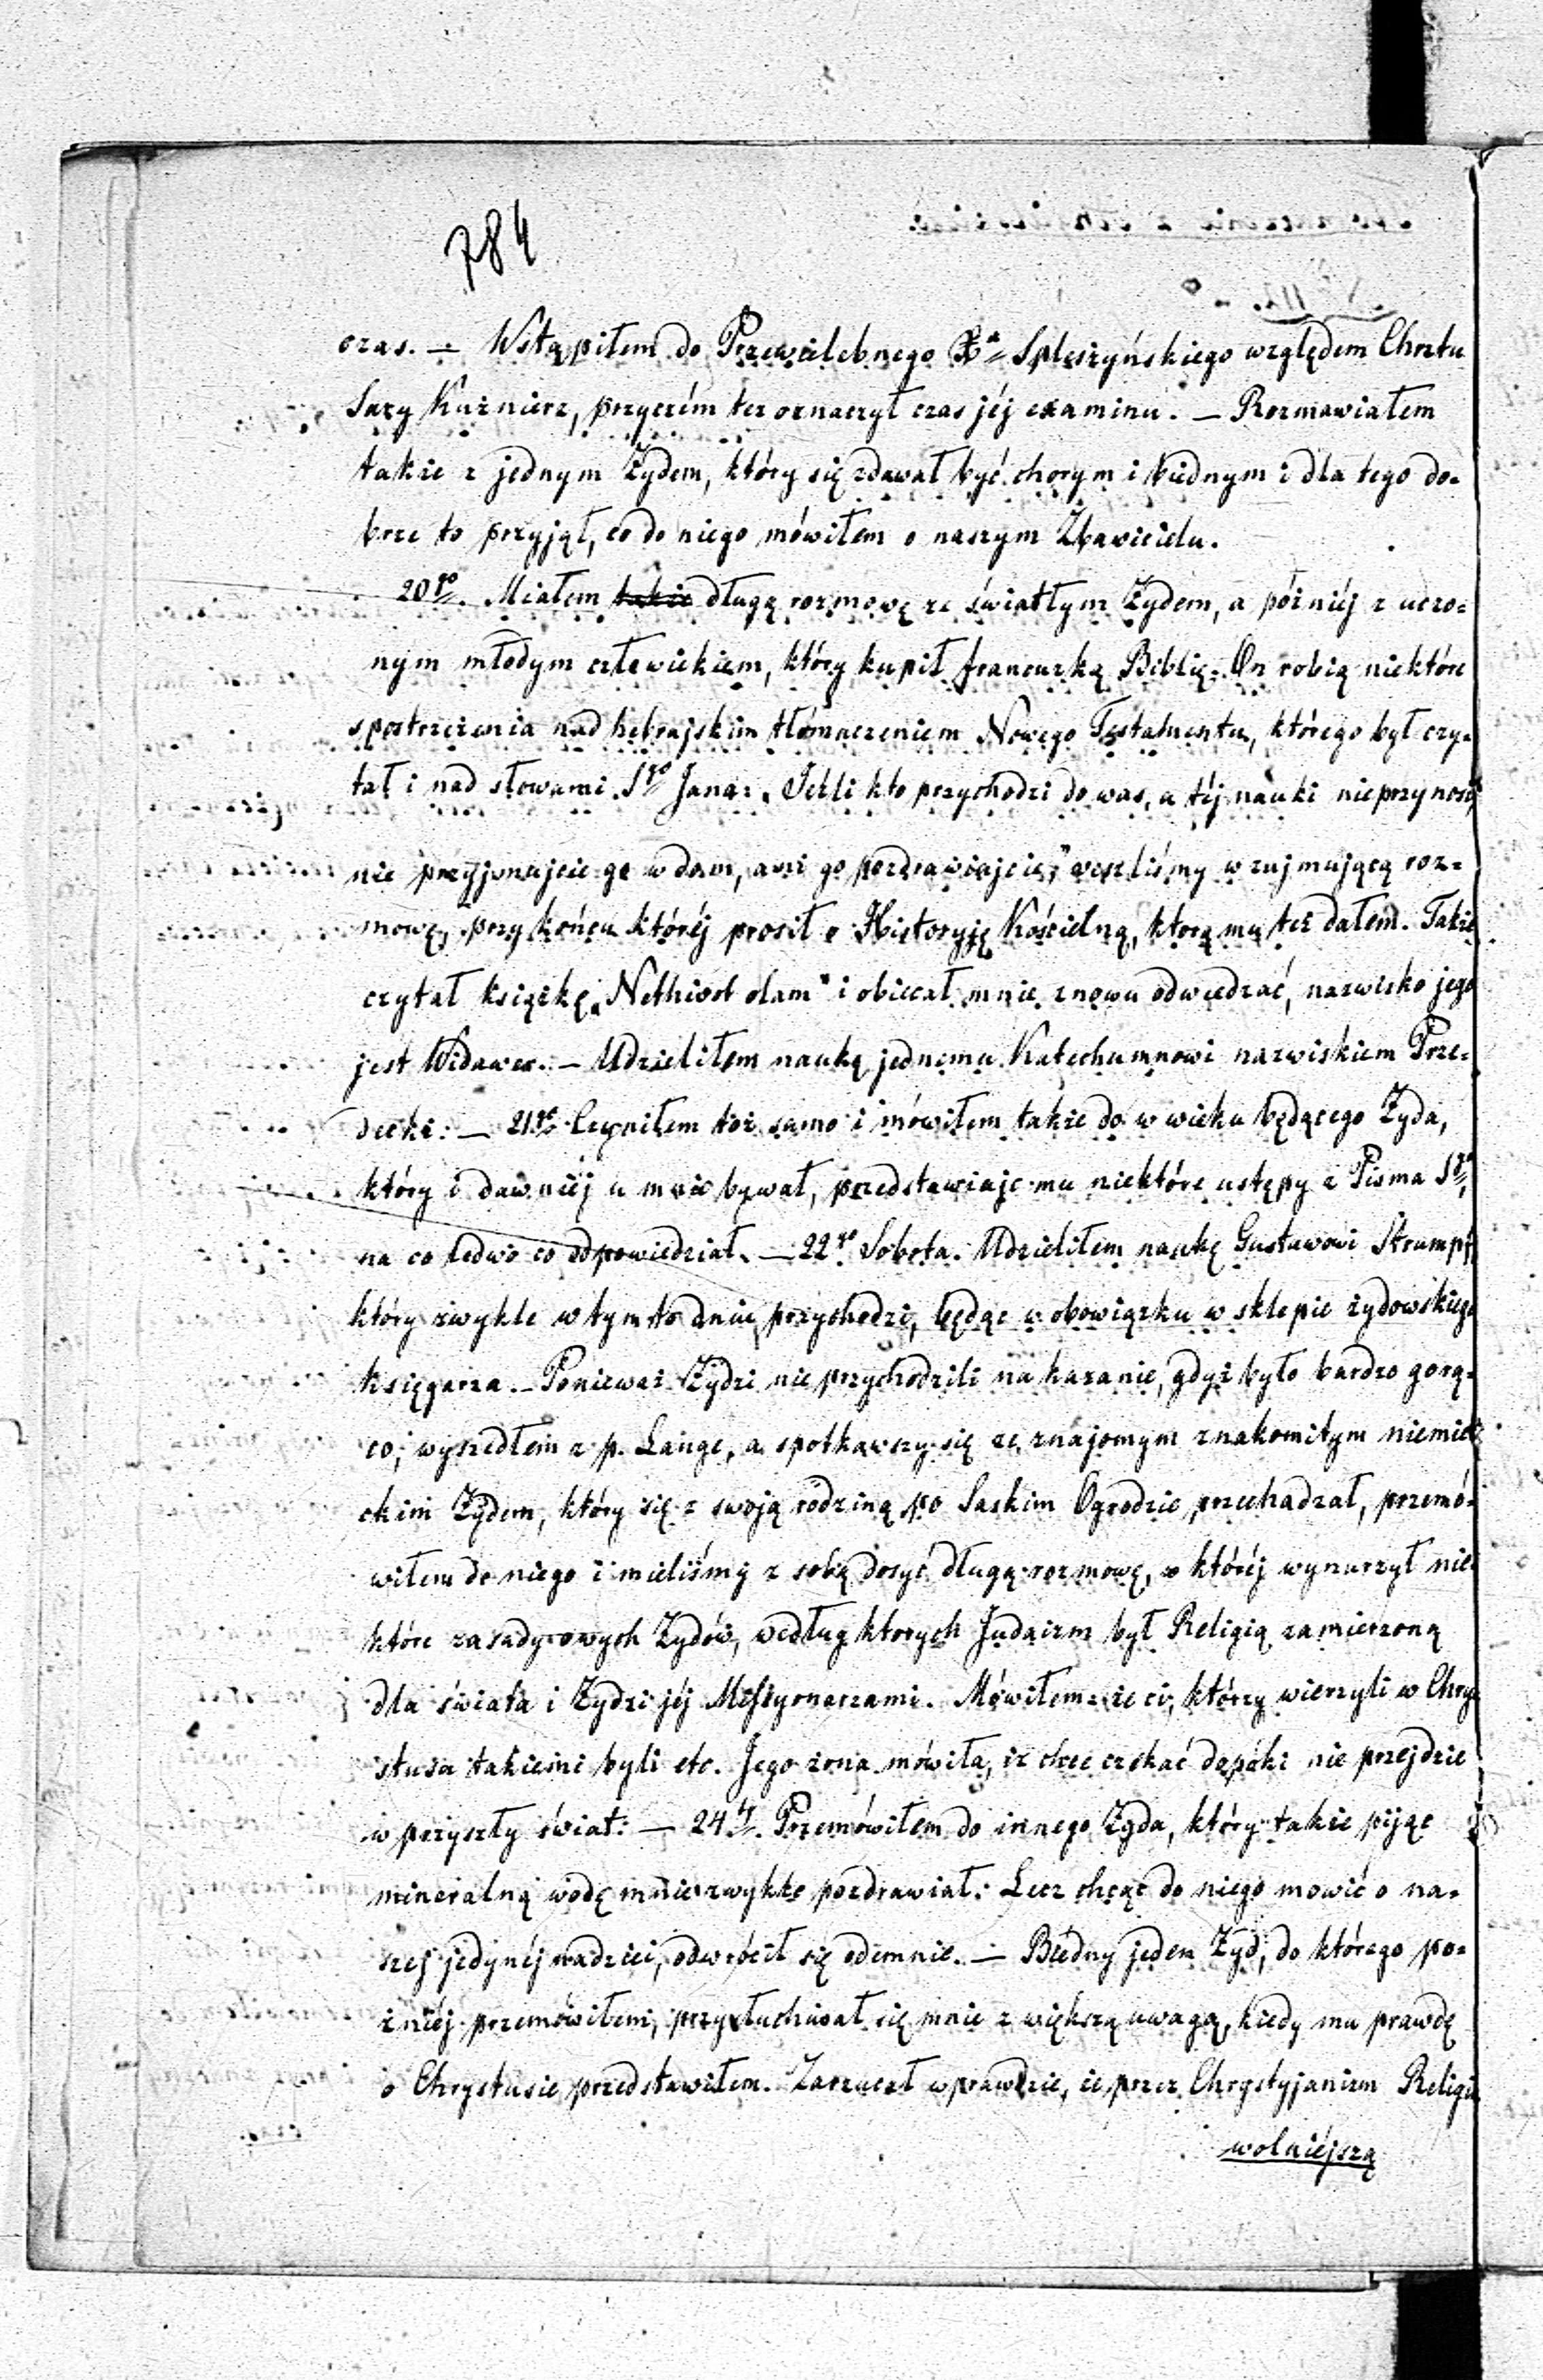 784
czas. — Wstąpiłem do Przewielebnego Xa Spleszyńskiego względem Chrztu
Sary Kuźnierz, przyczém ten oznaczył czas jéj examinu. — Rozmawiałem
także z jednym Żydem, który się zdawał być chorym i biednym i dla tego do-
brze to przyjął, co do niego mówiłem o naszym Zbawicielu.
20go. Miałem także długą rozmowę ze światłym Żydem, a późniéj z uczo-
nym młodym człowiekiem, który kupił francuzką Biblię. On robią niektóre
spostrzeżenia nad hebrajskim tłómaczeniem Nowego Testamentu, którego był czy-
tał i nad słowami Sgo Jana: „Jeśli kto przychodzi do was, a téj nauki nie przynosi,
nie przyjmujcie go w dom, ani go pozdrawiajcie," weszliśmy w zajmującą roz-
mowę, przy końcu któréj prosił o Historyję Kościelną, którą mu też dałem. Także
czytał książkę „Nethivot olam" i obiecał mnie znowu odwiedzać, nazwisko jego
jest Widawer. — Udzieliłem naukę jednemu Katechumnowi nazwiskiem Prze-
decki. — 21go Czyniłem toż samo i mówiłem także do w wieku będącego Żyda,
który i dawniéj u mnie bywał, przedstawiając mu niektóre ustępy z Pisma Sgo,
na co ledwo co odpowiedział. — 22go Sobota. Udzieliłem naukę Gustawowi Strumpf,
który zwykle w tym to dniu przychodzi, będąc w obowiązku w sklepie żydowskiego
księgarza. — Ponieważ Żydzi nie przychodzili na kazanie, gdyż było bardzo gorą-
co, wyszedłem z p. Lange, a spotkawszy się ze znajomym znakomitym niemie-
ckim Żydem, który się z swoją rodziną po Saskim Ogrodzie przechadzał, przemó-
wiłem do niego i mieliśmy z sobą dosyć długą rozmowę, w któréj wynurzył nie-
które zasady owych Żydów, według ktorych Judaizm był Religią zamierzoną
dla świata i Żydzi jéj Missyonarzami. Mówiłem że ci, którzy wierzyli w Chry-
stusa takiemi byli etc. Jego żona mówiła, iż chce czekać dopóki nie przejdzie
w przyszły świat. — 24ty. Przemówiłem do innego Żyda, który także pijąc
mineralną wodę mnie zwykle pozdrawiał. Lecz chcąc do niego mowić o na-
szej jedynéj nadziei, odwrócił się odemnie. — Biedny jeden Żyd, do którego po-
źniéj przemówiłem, przysłuchiwał się mnie z większą uwagą, kiedy mu prawdę
o Chrystusie przedstawiłem. Zarzucał wprawdzie, że przez Chrystyjanizm Religią
wolniéjszą